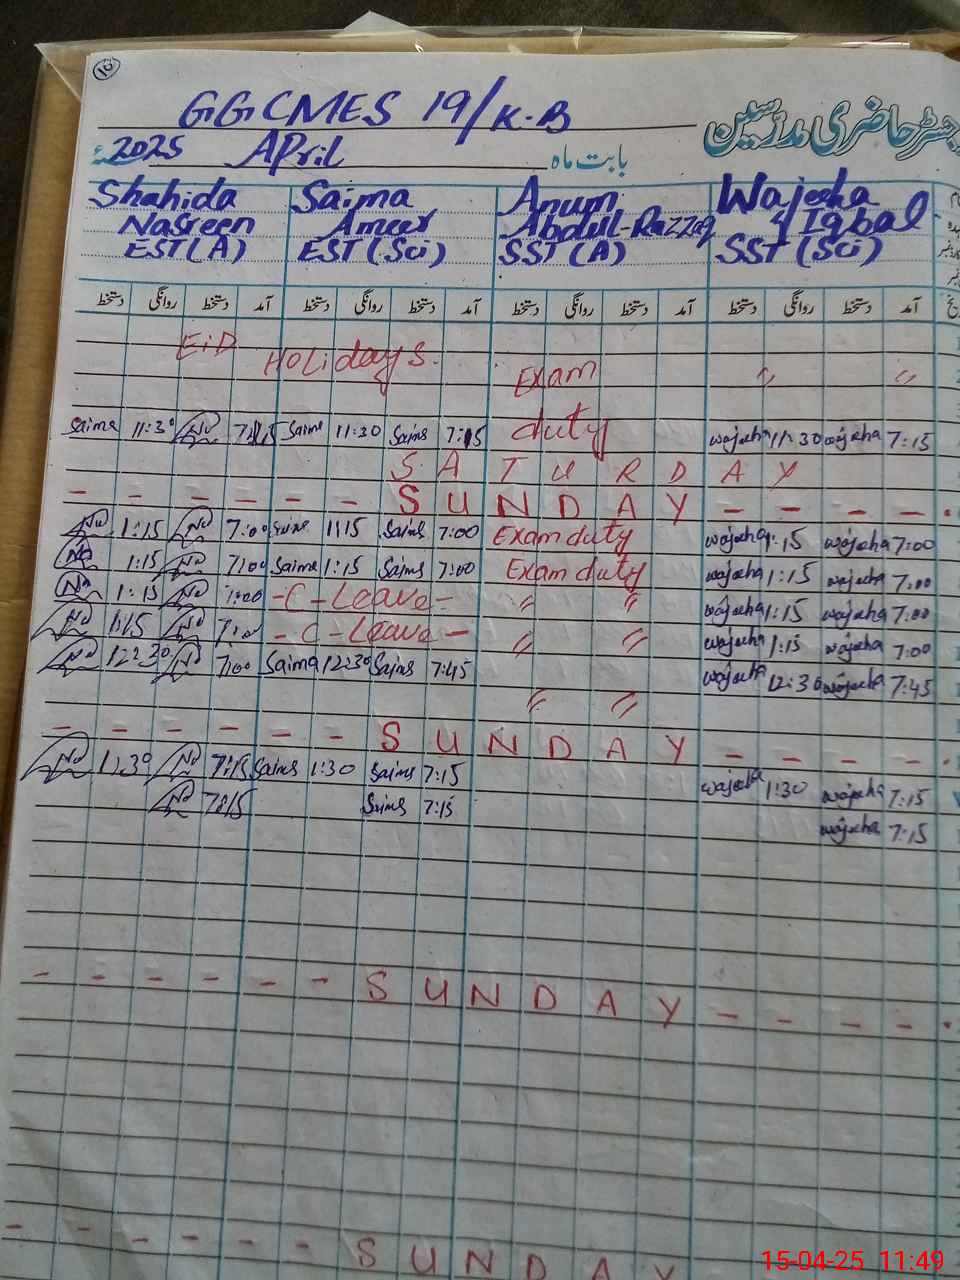 10
GGCMES 19/K-B
رجسٹر حاضری مدرسین
2025ء April بابت ماہ
Shahida Nasreen EST(A)
Saima Ameer EST(Sci)
Anum Abdul-Razzaq SST(A)
Wajeeha Iqbal SST(Sci)
دستخط روانگی دستخط آمد دستخط روانگی دستخط آمد دستخط روانگی دستخط آمد دستخط روانگی دستخط آمد
EiD Holidays.
Exam 〃 〃
Saima 11:30 7:15 Saima 11:30 Saima 7:15 duty wajeeha 11:30 wajeeha 7:15
SATURDAY
- - - - - - SUNDAY - - - -
1:15 7:00 Saima 1:15 Saima 7:00 Exam duty wajeeha 1:15 wajeeha 7:00
1:15 7:00 Saima 1:15 Saima 7:00 Exam duty wajeeha 1:15 wajeeha 7:00
1:15 7:00 -C-Leave- 〃 〃 wajeeha 1:15 wajeeha 7:00
1:15 7:00 -C-Leave- 〃 〃 wajeeha 1:15 wajeeha 7:00
12:30 7:00 Saima 12:30 Saima 7:45 wajeeha 12:30 wajeeha 7:45
〃 〃
- - - - - - SUNDAY - - - -
1:30 7:15 Saima 1:30 Saima 7:15 wajeeha 1:30 wajeeha 7:15
7:15 Saima 7:15 wajeeha 7:15
- - - - - - SUNDAY - - - -
- - - - - - SUNDAY
15-04-25 11:49